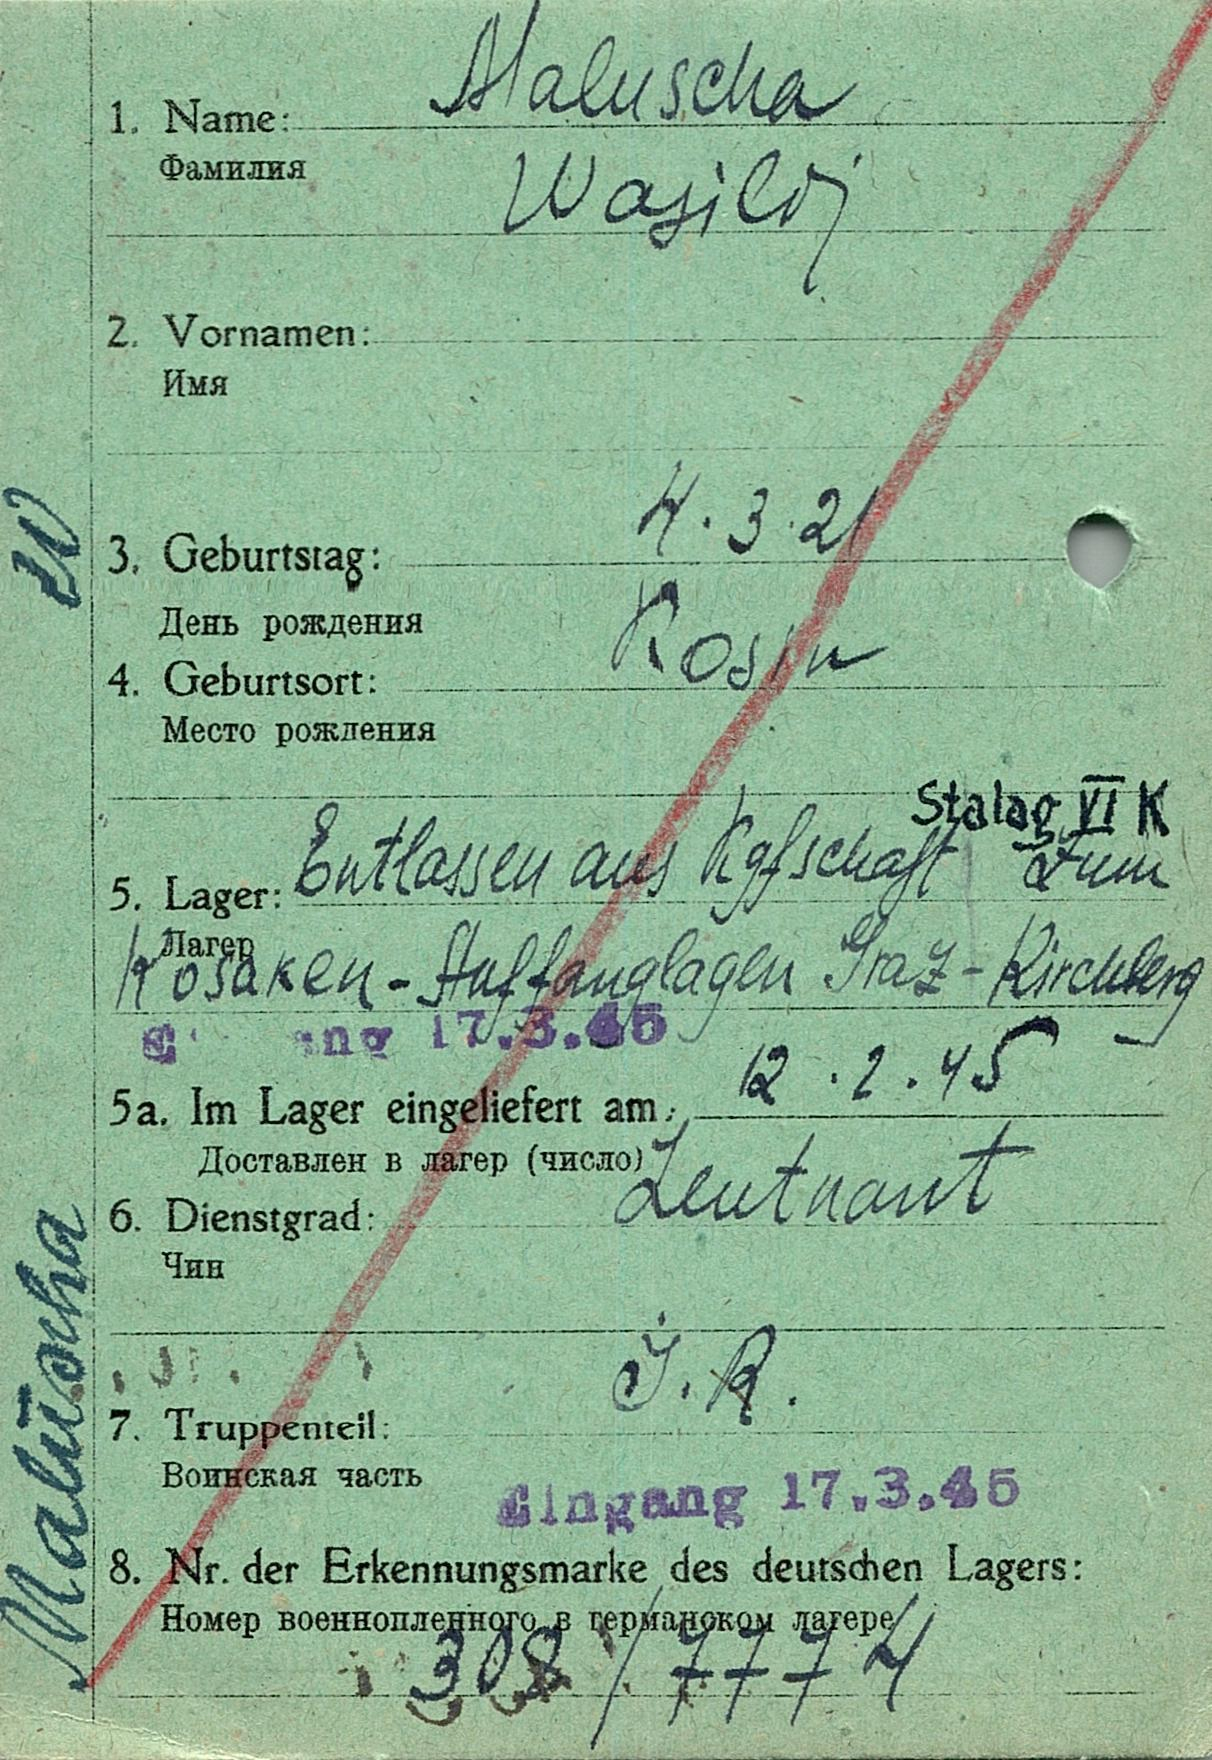 Maluscha
1. Name:
Фамилия
Wasilij
2. Vornamen:
Имя
4.3.21
3. Geburtstag:
День рождения
Rosin
4. Geburtsort:
Место рождения
Stalag VI K
5. Lager: Entlassen aus Kgfschaft zum
Лагер
Kosaken-Auffanglagen Graz-Kirchberg
Eingang 17.3.45
5a. Im Lager eingeliefert am: 12.2.45
Доставлен в лагер (число)
6. Dienstgrad: Leutnant
Чин
J.R.
7. Truppenteil:
Воинская часть
Eingang 17.3.45
8. Nr. der Erkennungsmarke des deutschen Lagers:
Номер военнопленного в германском лагере
308/7774
Maluscha